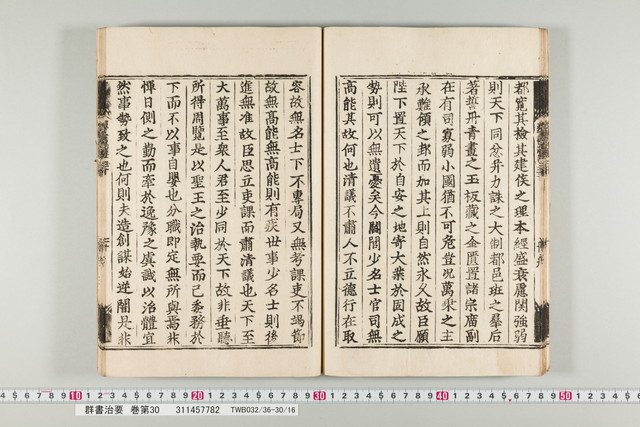 都寬其檢其建侯之理本經盛衰慮関強弱
則天下同忿并力誅之大制都邑班之羣后
著誓丹青畫之玉板藏之金匱置諸宗廟副
在有司寡弱小國猶不可危豈況萬乘之主
永難傾之邦而加其上則自然永久故臣願
陛下置天下於自安之地寄大業於固成之
勢則可以無遺憂矣今閭閻少名士官司無
高能其故何也清議不肅人不立德行在取
容故無名士下不專局又無考課吏不竭節
故無高能無高能則有疾世事少名士則後
進無准故臣思立吏課而肅清議也天下至
大萬事至衆人君至少同於天下故非垂聽
所得周覽是以聖王之治執要而已委務於
下而不以事自嬰也分職即定無所與焉非
憚日側之勤而牽於逸豫之虞誠以治體宜
然事勢致之也何則夫造創謀始逆闇是非
10 20 30 40 50
群書治要 巻第30 311457782 TWB032/36-30/16